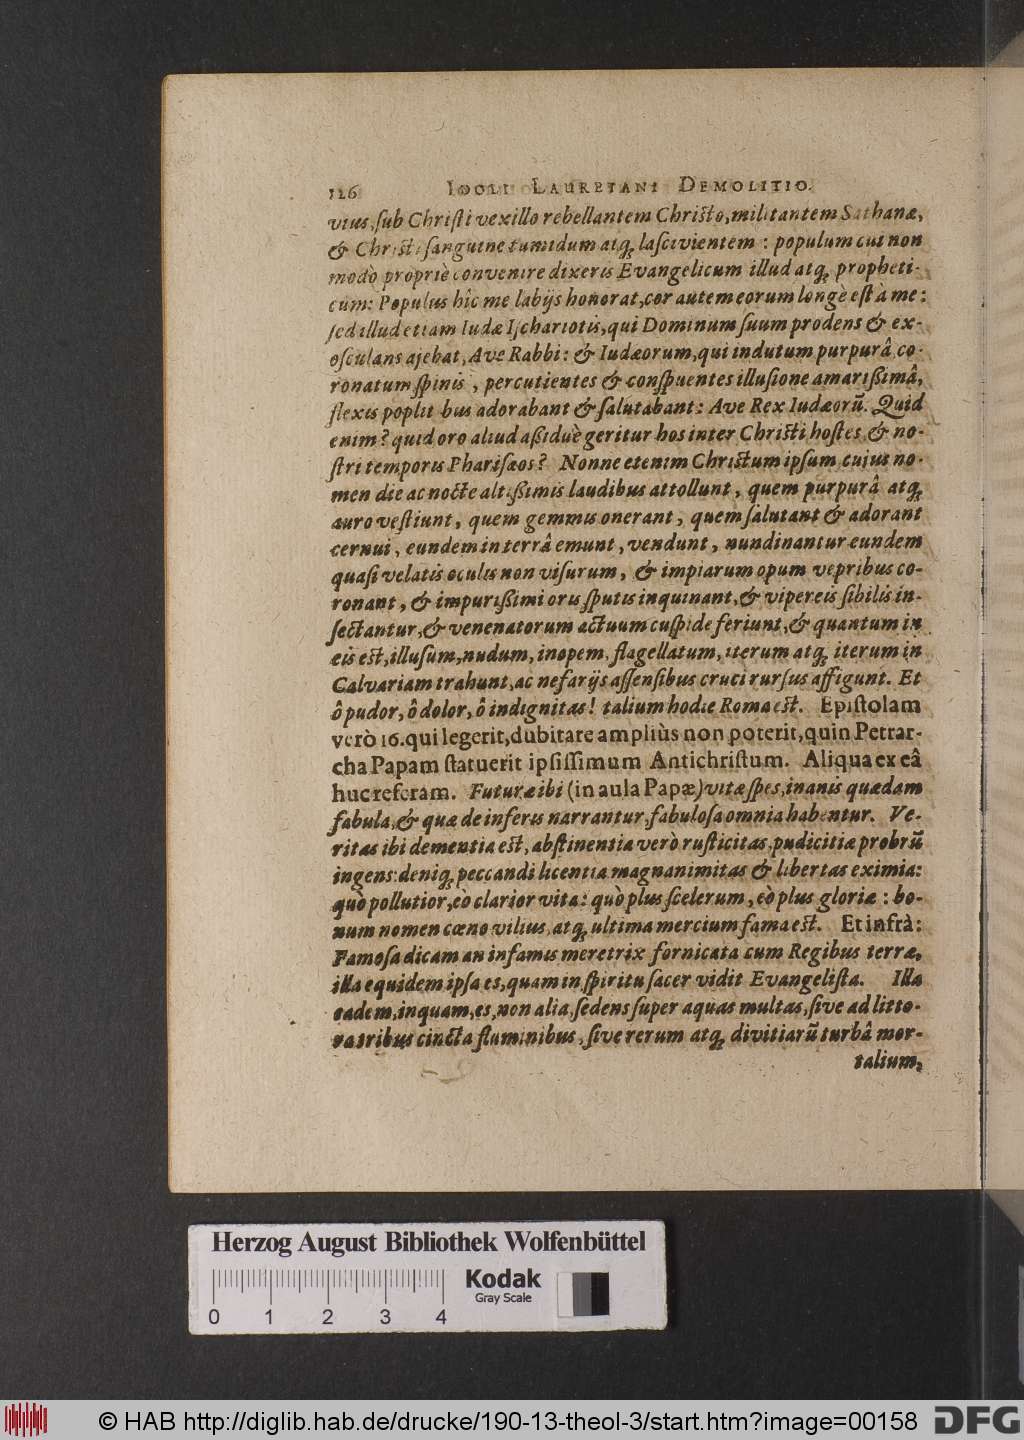 126 IDOLI LAURETANI DEMOLITIO.
vius, ſub Chriſti vexillo rebellantem Chriſto, militantem Sathanæ,
& Chriſti ſanguine tumidum atq; laſcivientem : populum cui non
modò propriè convenire dixeris Evangelicum illud atq; propheti-
cum: Populus hîc me labijs honorat, cor autem eorum longè eſt à me:
ſed illud etiam Iudæ Iſchariotis, qui Dominum ſuum prodens & ex-
oſculans ajebat, Ave Rabbi: & Iudæorum, qui indutum purpurâ, co-
ronatum ſpinis, percutientes & conſpuentes illuſione amariſſimâ,
flexis poplitibus adorabant & ſalutabant: Ave Rex Iudæorũ. Quid
enim? quid oro aliud aßiduè geritur hos inter Chriſti hoſtes & no-
ſtri temporis Phariſæos? Nonne etenim Chriſtum ipſum, cujus no-
men die ac nocte altißimis laudibus attollunt, quem purpurâ atq;
auro veſtiunt, quem gemmis onerant, quem ſalutant & adorant
cernui, eundem in terrâ emunt, vendunt, nundinantur eundem
quaſi velatis oculis non viſurum, & impiarum opum vepribus co-
ronant, & impurißimi oris ſputis inquinant, & vipereis ſibilis in-
ſectantur, & venenatorum actuum cuſpide feriunt, & quantum in
eis eſt, illuſum, nudum, inopem, flagellatum, iterum atq; iterum in
Calvariam trahunt, ac nefarijs aſſenſibus cruci rurſus affigunt. Et
ô pudor, ô dolor, ô indignitas! talium hodie Roma eſt. Epiſtolam
verò 16. qui legerit, dubitare ampliùs non poterit, quin Petrar-
cha Papam ſtatuerit ipſiſſimum Antichriſtum. Aliqua ex eâ
huc referam. Futuræ ibi (in aula Papæ) vitæ ſpes, inanis quædam
fabula, & quæ de inferis narrantur, fabuloſa omnia habentur. Ve-
ritas ibi dementia eſt, abſtinentia verò ruſticitas, pudicitia probrũ
ingens: deniq; peccandi licentia magnanimitas & libertas eximia:
quò pollutior, eò clarior vita: quò plus ſcelerum, eò plus gloriæ : bo-
num nomen cœno vilius, atq; ultima mercium fama eſt. Et infrà:
Famoſa dicam an infamis meretrix fornicata cum Regibus terræ,
illa equidem ipſa es, quam in ſpiritu ſacer vidit Evangeliſta. Illa
eadem, inquam, es, non alia, ſedens ſuper aquas multas, ſive ad litto-
ra tribus cincta fluminibus, ſive rerum atq; divitiarũ turbâ mor-
talium,
Herzog August Bibliothek Wolfenbüttel
Kodak
Gray Scale
0 1 2 3 4
© HAB http://diglib.hab.de/drucke/190-13-theol-3/start.htm?image=00158 DFG